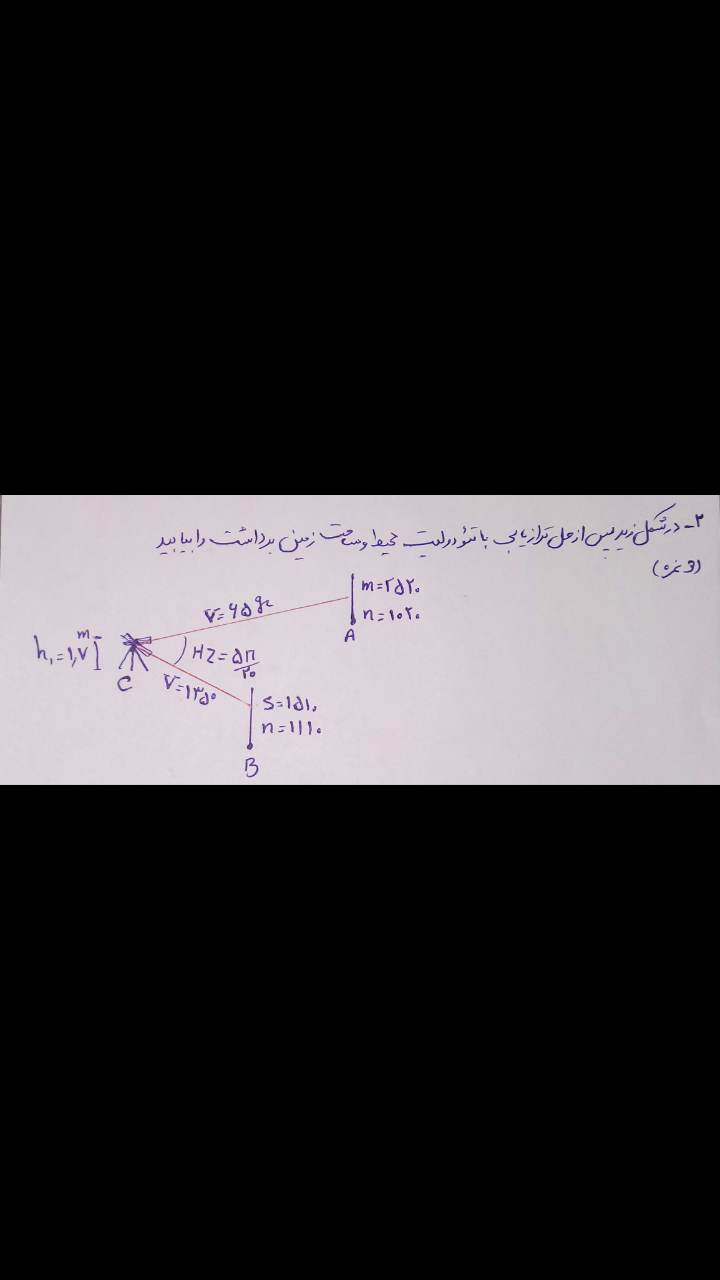 ۲- در شکل زیر پس از حل ترازیابی با تئودولیت محیط و مساحت زمین برداشت را بیابید
(3 نمره)
m=۲۵۲۰
V=۶۵gr
n=۱۰۲۰
A
h₁=۱,۷m
HZ=۵π/۲۰
C
V=۱۳۵°
S=۱۵۱۰
n=۱۱۱۰
B